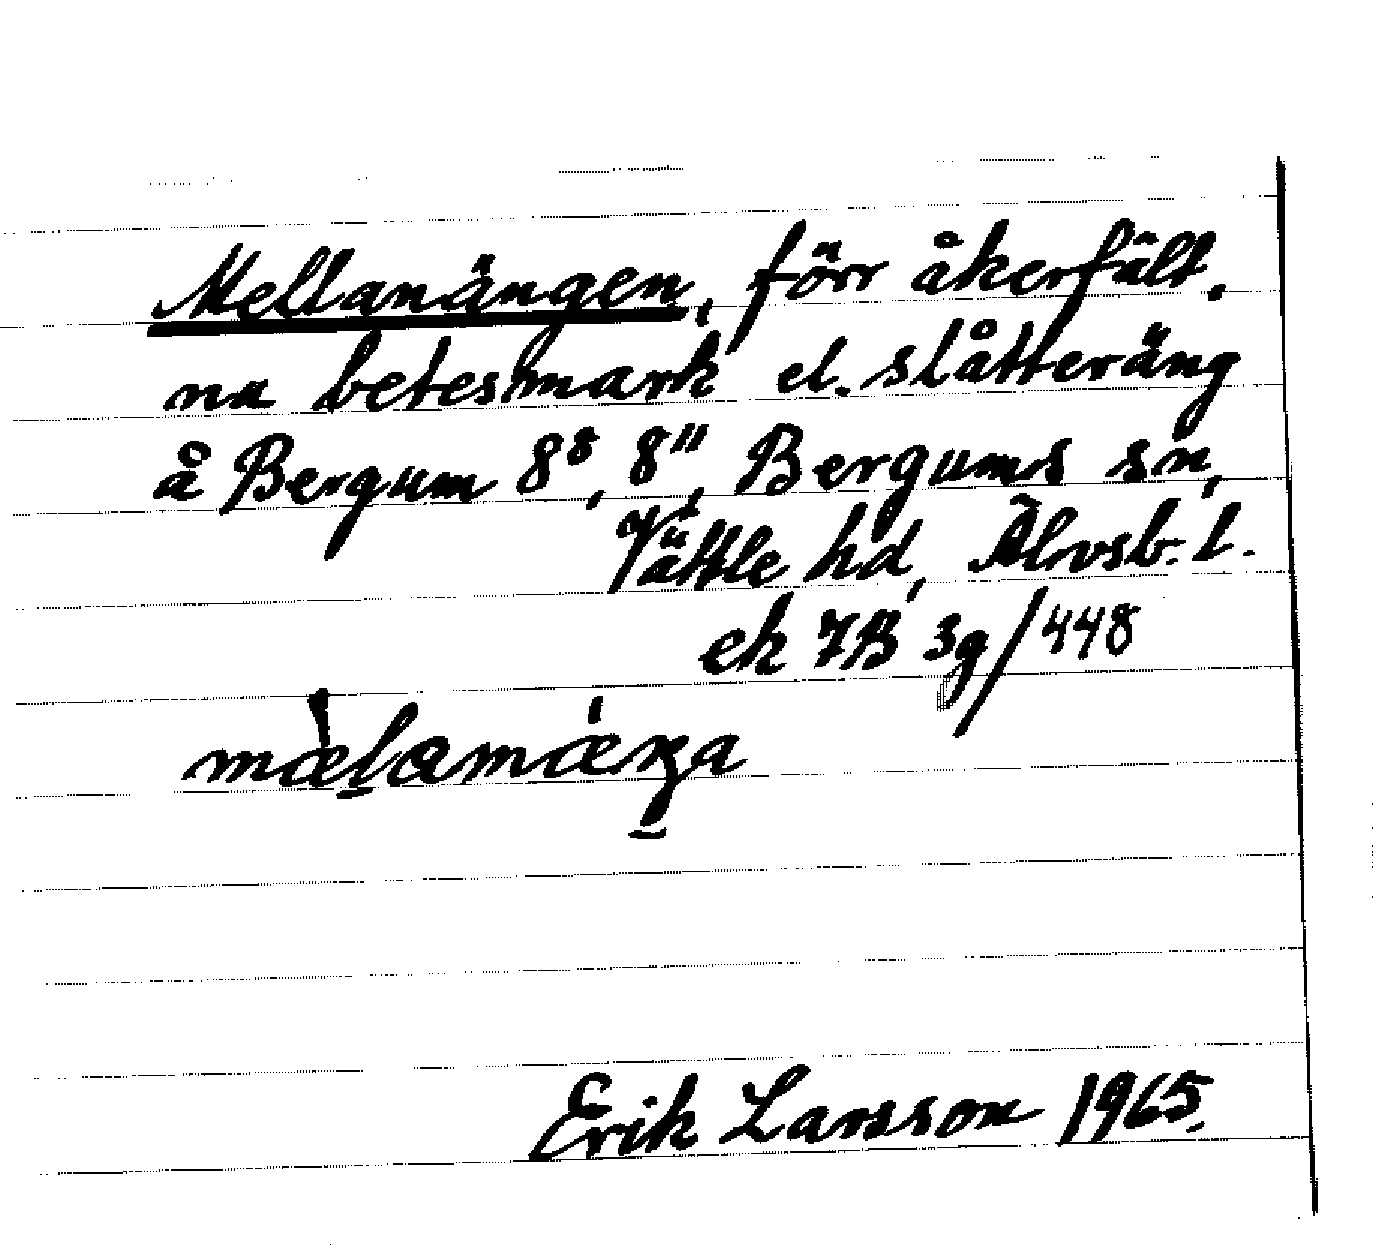 Mellanängen, förr åkerfält,
nu betesmark el. slåtteräng
å Bergum 8⁸, 8¹¹, Bergums sn,
Vättle hd, Älvsb. l.
ek 7B 3g/448
mæ̀lamǽŋa
Erik Larsson 1965.